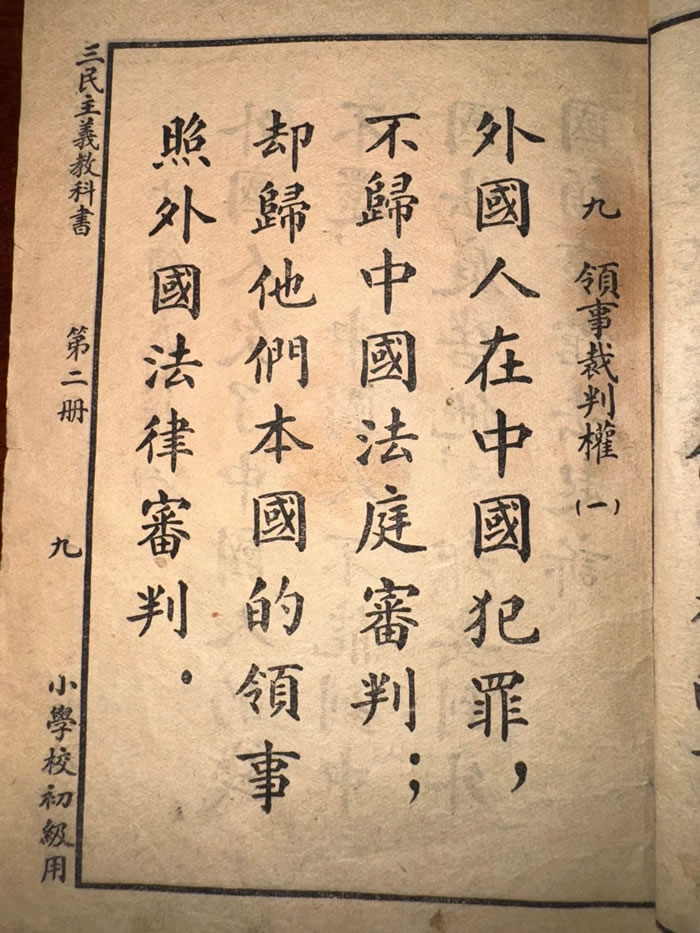 九 領事裁判權 (一)
外國人在中國犯罪，
不歸中國法庭審判；
却歸他們本國的領事
照外國法律審判．
三民主義教科書 第二册 九 小學校初級用